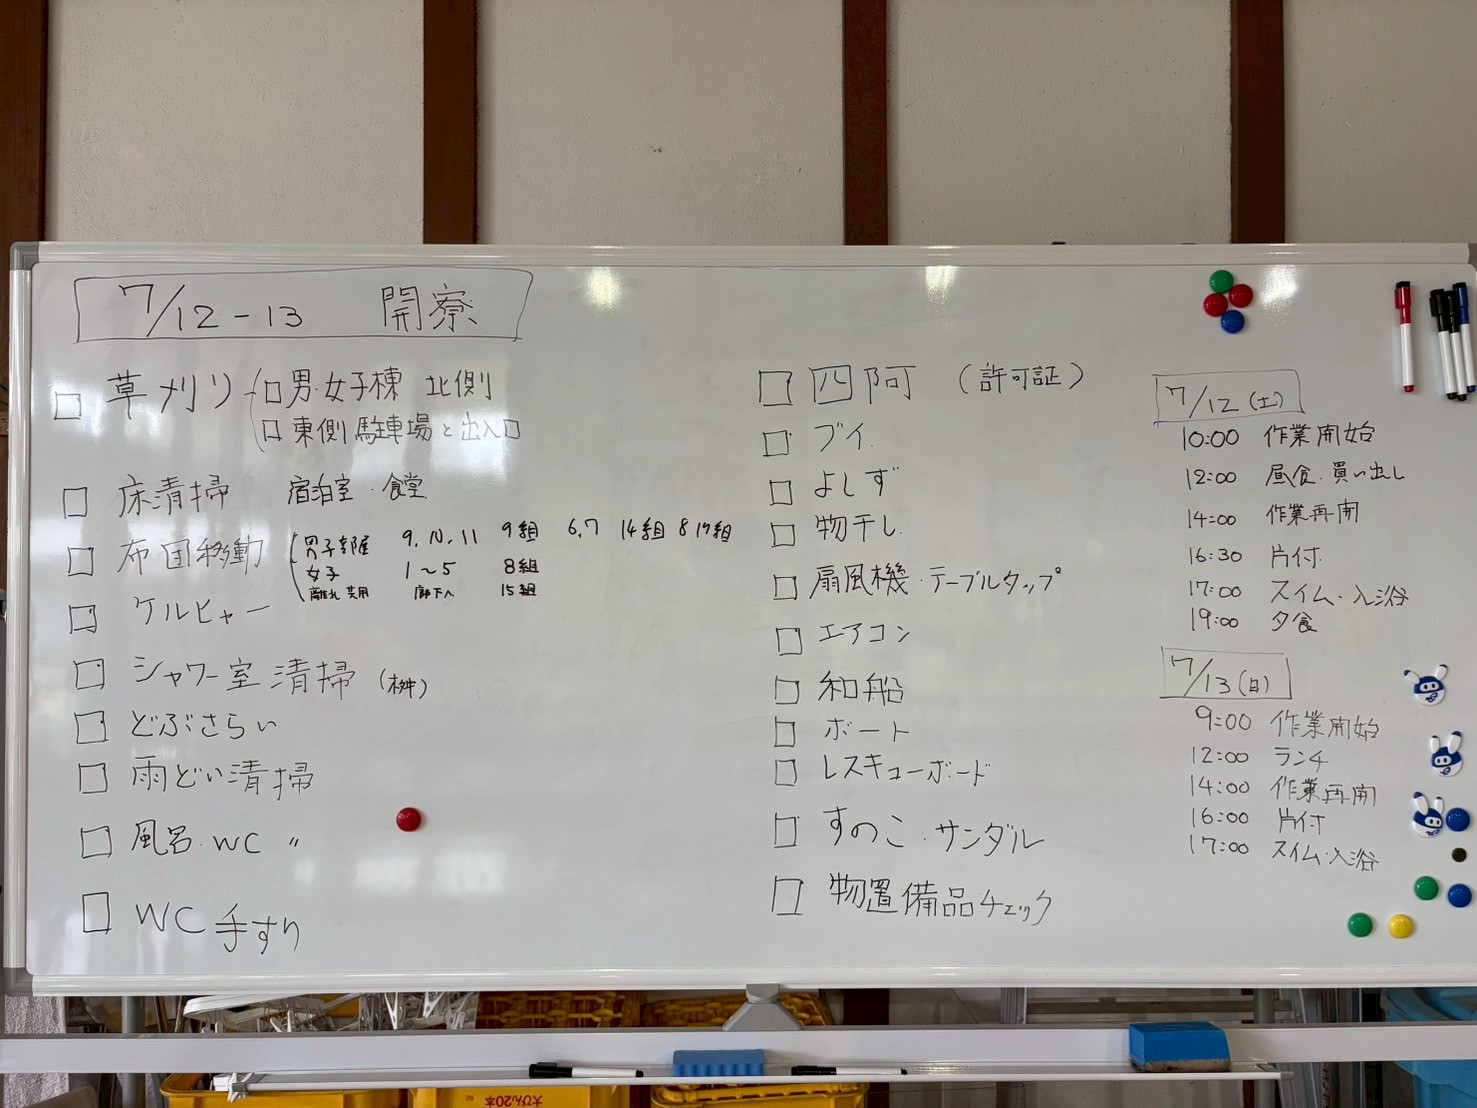 7/12-13 開寮
□ 草刈り □ 男・女子棟 北側
□ 東側 駐車場と出入口
□ 床清掃 宿泊室・食堂
□ 布団移動 男子部屋 9, 10, 11 9組 6,7 14組 8 19組
女子 1～5 8組
離れ 共用 廊下へ 15組
□ ケルヒャー
□ シャワー室清掃 (桝)
□ どぶさらい
□ 雨どい清掃
□ 風呂・WC 〃
□ WC 手すり
□ 四阿 (許可証)
□ ブイ
□ よしず
□ 物干し
□ 扇風機・テーブルタップ
□ エアコン
□ 和船
□ ボート
□ レスキューボード
□ すのこ・サンダル
□ 物置備品チェック
7/12(土)
10:00 作業開始
12:00 昼食・買い出し
14:00 作業再開
16:30 片付
17:00 スイム・入浴
19:00 夕食
7/13(日)
9:00 作業開始
12:00 ランチ
14:00 作業再開
16:00 片付
17:00 スイム・入浴
大びん20本